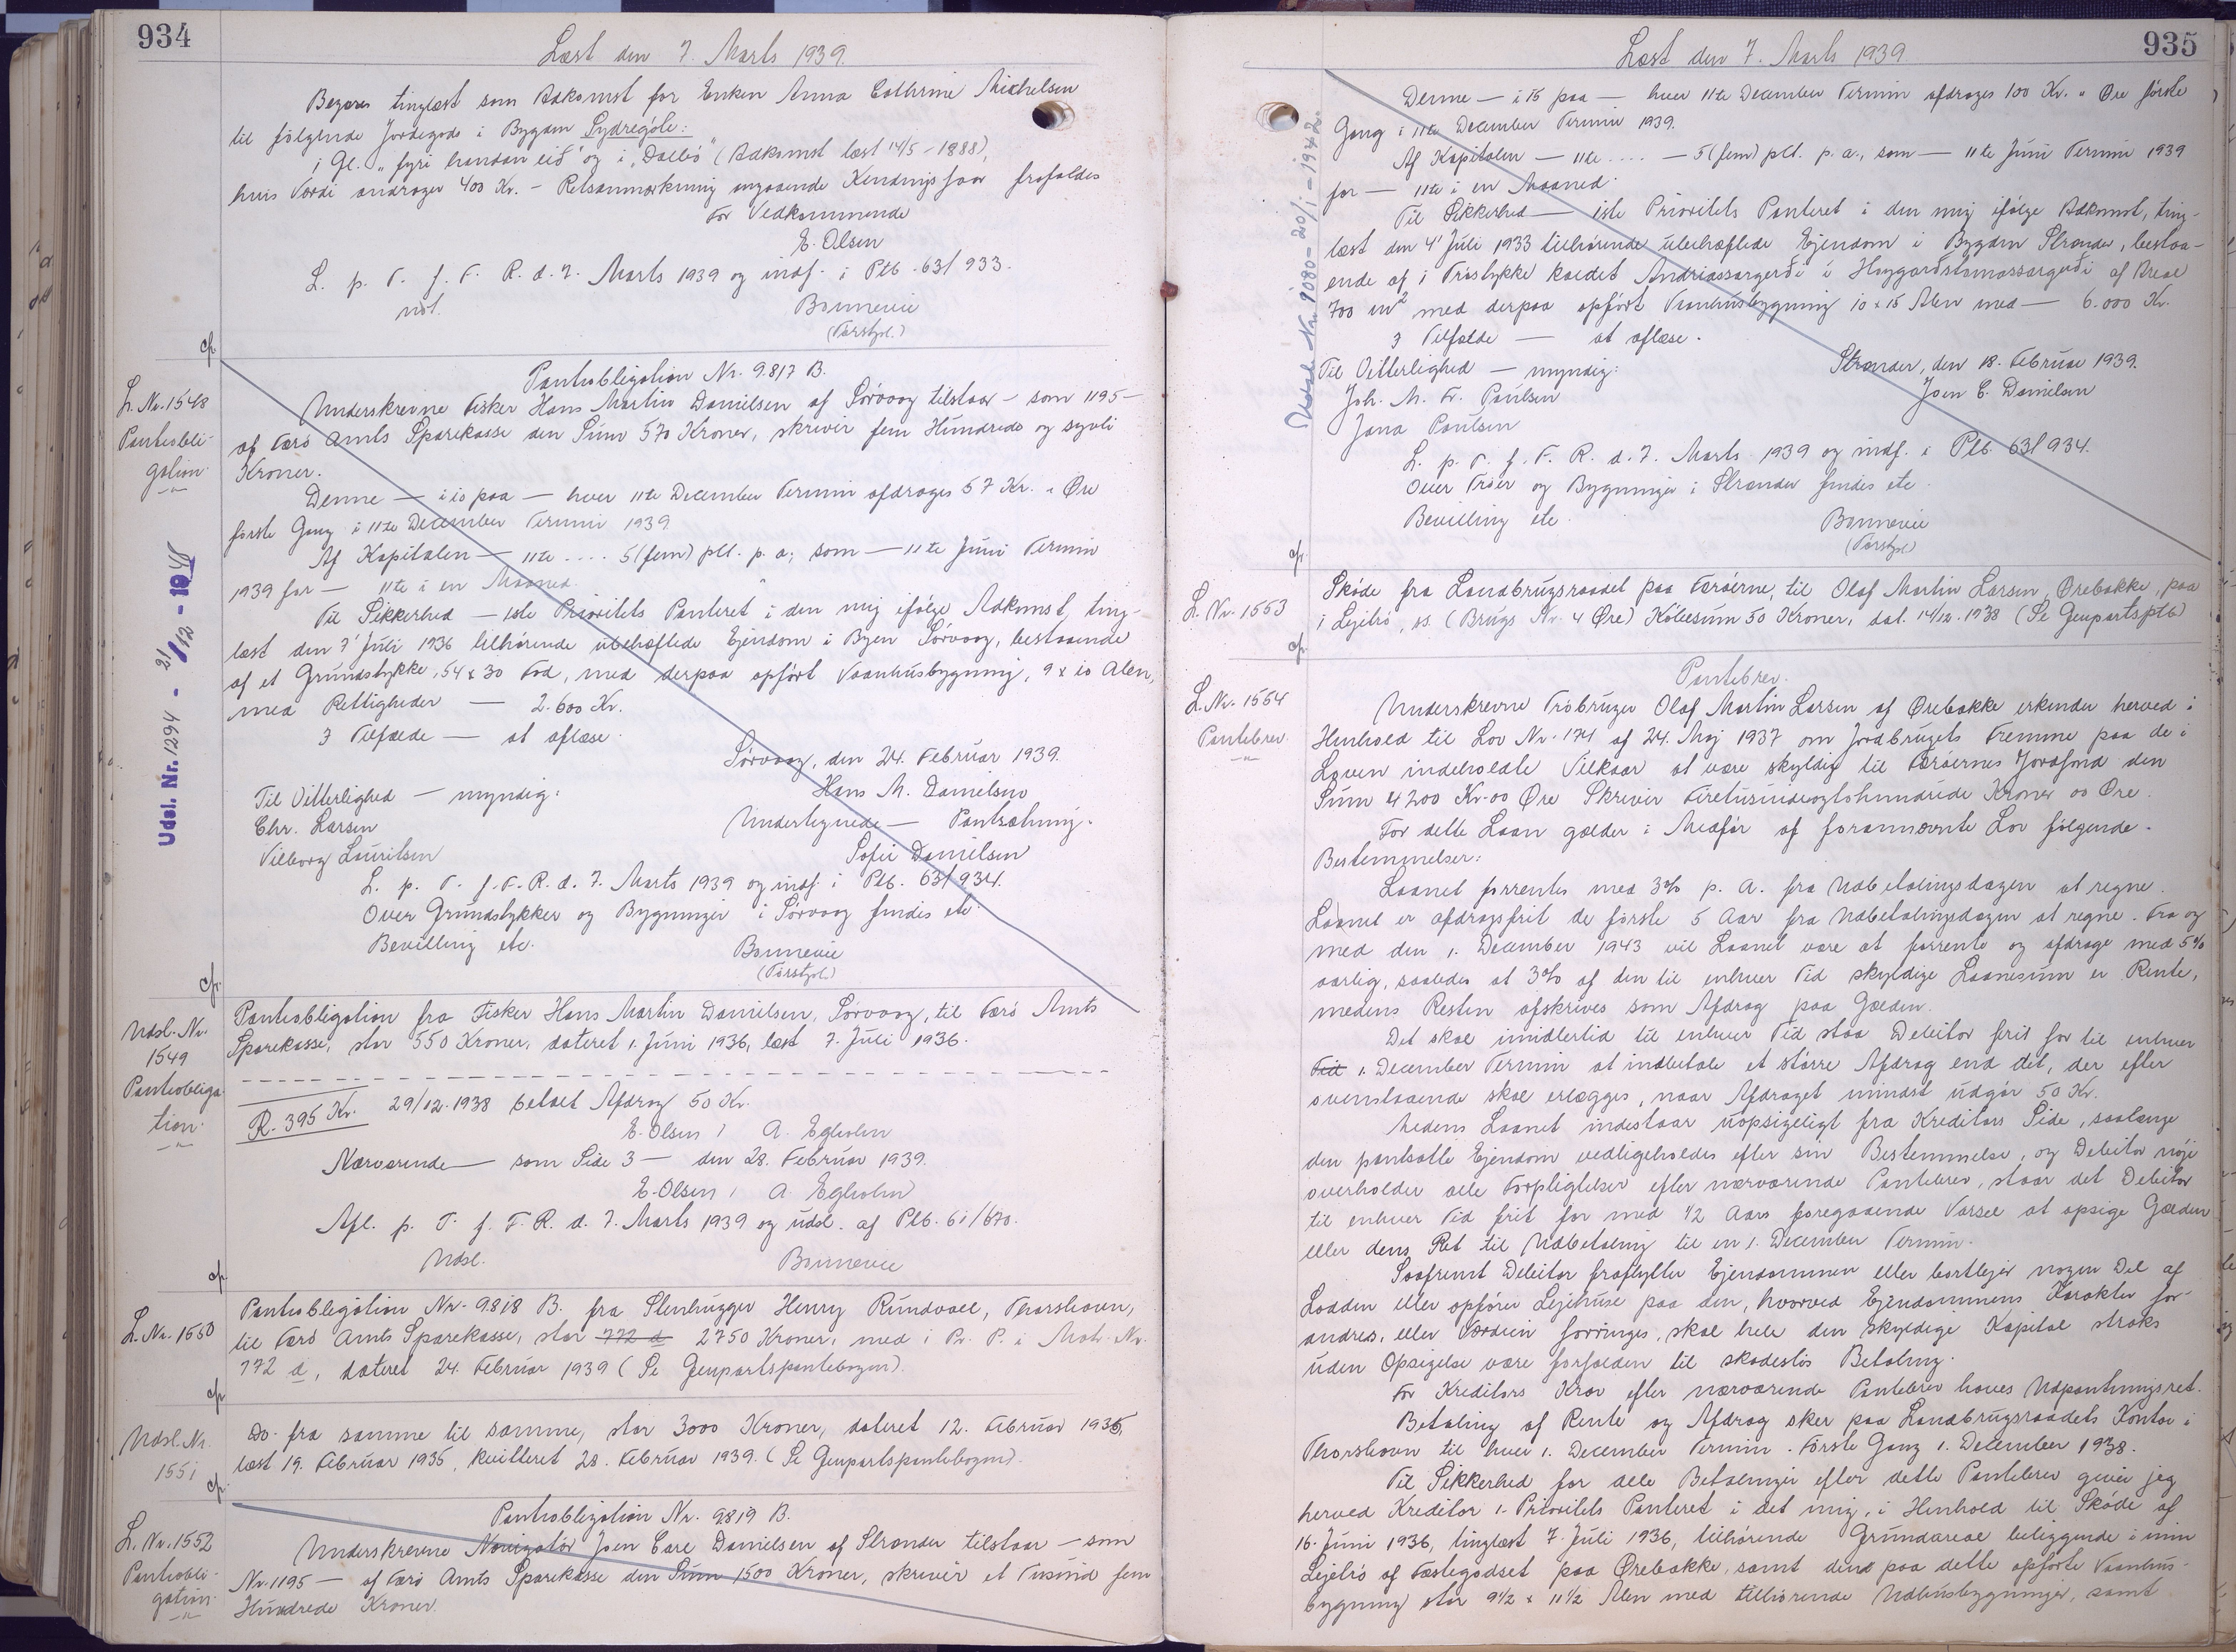 934
Læst den 7. Marts 1939.
Begæres tinglæst som Adkomst for Enken Anna Cathrine Michelsen
til følgende Jordegods i Bygden Sydregøte:
i Gl. "fyri handan eið" og i "Dalbø" (Adkomst læst 14/5-1888),
hvis Værdi andrager 400 Kr. - Retsanmærkning angaaende Kendingsfaar frafaldes
For Vedkommende
E. Olsen
L. p. T. f. F. R. d. 7. Marts 1939 og indf. i Ptb. 63/933.
not. Bonnevie
(Tórstpl.)
cfr.
L. Nr. 1548
Pantobli-
gation
Pantobligation Nr. 9817 B.
Underskrevne Fisker Hans Martin Danielsen af Sörvaag tilstaar - som 1195 -
af Færø Amts Sparekasse den Sum 570 Kroner, skriver fem Hundrede og syvti
Kroner.
Denne - i 10 paa - hver 11te December Termin afdrages 57 Kr. " Øre
første Gang i 11te December Termin 1939.
Af Kapitalen - 11te .... 5 (fem) pCt. p. a; som - 11te Juni Termin
1939 for - 11te i en Maaned.
Til Sikkerhed - 1ste Prioritets Panteret i den mig ifølge Adkomst, ting-
læst den 7' Juli 1936 tilhørende ubehæftede Ejendom i Byen Sörvaag, bestaaende
af et Grundstykke, 54 x 30 Fod, med derpaa opført Vaanhusbygning, 9 x 10 Alen,
med Rettigheder - 2.600 Kr.
3 Tilfælde - at aflæse.
Sørvaag, den 24. Februar 1939.
Til Vitterlighed - myndig: Hans M. Danielsen
Chr. Larsen Undertegnede - Pantsætning.
Vilborg Lauritsen Sofie Danielsen
L. p. T. f. F. R. d. 7. Marts 1939 og indf. i Ptb. 63/934.
Over Grundstykker og Bygninger i Sørvaag findes etc.
Bevilling etc. Bonnevie
(Tórstpl.)
Udsl. Nr. 1294 - 21/12 - 1948
cfr.
Udsl. Nr.
1549
Pantobliga-
tion
Pantobligation fra Fisker Hans Martin Danielsen, Sörvaag, til Færø Amts
Sparekasse, stor 550 Kroner, dateret 1. Juni 1936, læst 7. Juli 1936.
R. 395 Kr. 29/12. 1938 betalt Afdrag 50 Kr.
E. Olsen / A. Egholm
Nærværende - som Side 3 - den 28. Februar 1939.
E. Olsen / A. Egholm
Afl. p. T. f. F. R. d. 7. Marts 1939 og udsl. af Ptb. 61/670.
Udsl. Bonnevie
cfr.
L. Nr. 1550
Pantobligation Nr. 9818 B. fra Stenhugger Henry Rundvael, Thorshavn,
til Færø Amts Sparekasse, stor 772 a 2750 Kroner, med i Pr. P. i Matr. Nr.
772 a, dateret 24. Februar 1939 (Se Genpartspantebogen).
cfr.
Udsl. Nr.
1551
Do. fra samme til samme, stor 3000 Kroner, dateret 12. Februar 1935,
læst 19. Februar 1935, kvitteret 28. Februar 1939. (Se Genpartspantebogen).
cfr.
L. Nr. 1552
Pantobli-
gation
Pantobligation Nr. 9819 B.
Underskrevne Navigatör Joen Carl Danielsen af Strander tilstaar - som
Nr. 1195 - af Færø Amts Sparekasse den Sum 1500 Kroner, skriver et Tusind fem
Hundrede Kroner.
935
Læst den 7. Marts 1939.
Denne - i 15 paa - hver 11te December Termin afdrages 100 Kr. " Øre første
Gang i 11te December Termin 1939.
Af Kapitalen - 11te .... - 5 (fem) pCt. p. a., som - 11te Juni Termin 1939
for - 11te i en Maaned.
Til Sikkerhed - 1ste Prioritets Panteret i den mig ifølge Adkomst, ting-
læst den 4' Juli 1933 tilhørende ubehæftede Ejendom i Bygden Strander, bestaa-
ende af i Tröstykke kaldet Andriassargerði i Hoygarðstomassargerði af Areal
700 m2 med derpaa opført Vaanhusbygning 10 x 15 Alen med - 6.000 Kr.
3 Tilfælde - at aflæse.
Til Vitterlighed - myndig: Strander, den 18. Februar 1939.
Joh. M. Fr. Poulsen Joen C. Danielsen
Jana Poulsen
L. p. T. f. F. R. d. 7. Marts 1939 og indf. i Ptb. 63/934.
Over Tröer og Bygninger i Strander findes etc.
Bevilling etc. Bonnevie
(Tórstpl.)
Udsl. Nr. 9080 - 20/1 - 1942.
cfr.
L. Nr. 1553
Skøde fra Landbrugsraadet paa Færøerne, til Olaf Martin Larsen, Ørebakke, paa
i Lejebrö, ss. (Brugs Nr. 4 Øre) Købesum 50 Kroner, dat. 14/12. 1938 (Se Genpartsptb)
cfr.
L. Nr. 1554
Pantebrev
Pantebrev.
Underskrevne Tróbruger Olaf Martin Larsen af Ørebakke erkender herved i
Henhold til Lov Nr. 174 af 24. Maj 1937 om Jordbrugets Fremme paa de i
Loven indeholdte Vilkaar at være skyldig til Færøernes Jordfond den
Sum 4200 Kr. 00 Øre Skriver Firetusindeogtohundrede Kroner 00 Øre.
For dette Laan gælder i Medfør af forannævnte Lov følgende
Bestemmelser:
Laanet forrentes med 3% p. A. fra Udbetalingsdagen at regne.
Laanet er afdragsfrit de første 5 Aar fra Udbetalingsdagen at regne. Fra og
med den 1. December 1943 vil Laanet være at forrente og afdrage med 5%
aarlig, saaledes at 3% af den til enhver Tid skyldige Laanesum er Rente,
medens Resten afskrives som Afdrag paa Gælden.
Det skal imidlertid til enhver Tid staa Debitor frit for til enhver
Tid 1. December Termin at indbetale et større Afdrag end det, der efter
ovenstaaende skal erlægges, naar Afdraget mindst udgør 50 Kr.
Medens Laanet indestaar uopsigeligt fra Kreditors Side, saalænge
den pantsatte Ejendom vedligeholdes efter sin Bestemmelse, og Debitor nöje
overholder alle Forpligtelser efter nærværende Pantebrev, staar det Debitor
til enhver Tid frit for med 1/2 Aars foregaaende Varsel at opsige Gælden
eller dens Ret til Udbetaling til en 1. December Termin.
Saafremt Debitor fraflytter Ejendommen eller bortlejer nogen Del af
Lodden eller opfører Lejehuse paa den, hvorved Ejendommens Karakter for-
andres, eller Værdien forringes, skal hele den skyldige Kapital straks
uden Opsigelse være forfalden til skadesløs Betaling.
For Kreditors Krav efter nærværende Pantebrev haves Udpantningsret.
Betaling af Rente og Afdrag sker paa Landbrugsraadets Kontor i
Thorshavn til hver 1. December Termin. Første Gang 1. December 1938.
Til Sikkerhed for alle Betalinger efter dette Pantebrev giver jeg
herved Kreditor 1. Prioritets Panteret i det mig, i Henhold til Skøde af
16. Juni 1936, tinglæst 7. Juli 1936, tilhørende Grundareal beliggende i min
Lejebrö af Fæstegodset paa Ørebakke, samt den paa dette opførte Vaanhus-
bygning stor 9 1/2 x 11 1/2 Alen med tilhørende Udhusbygninger, samt